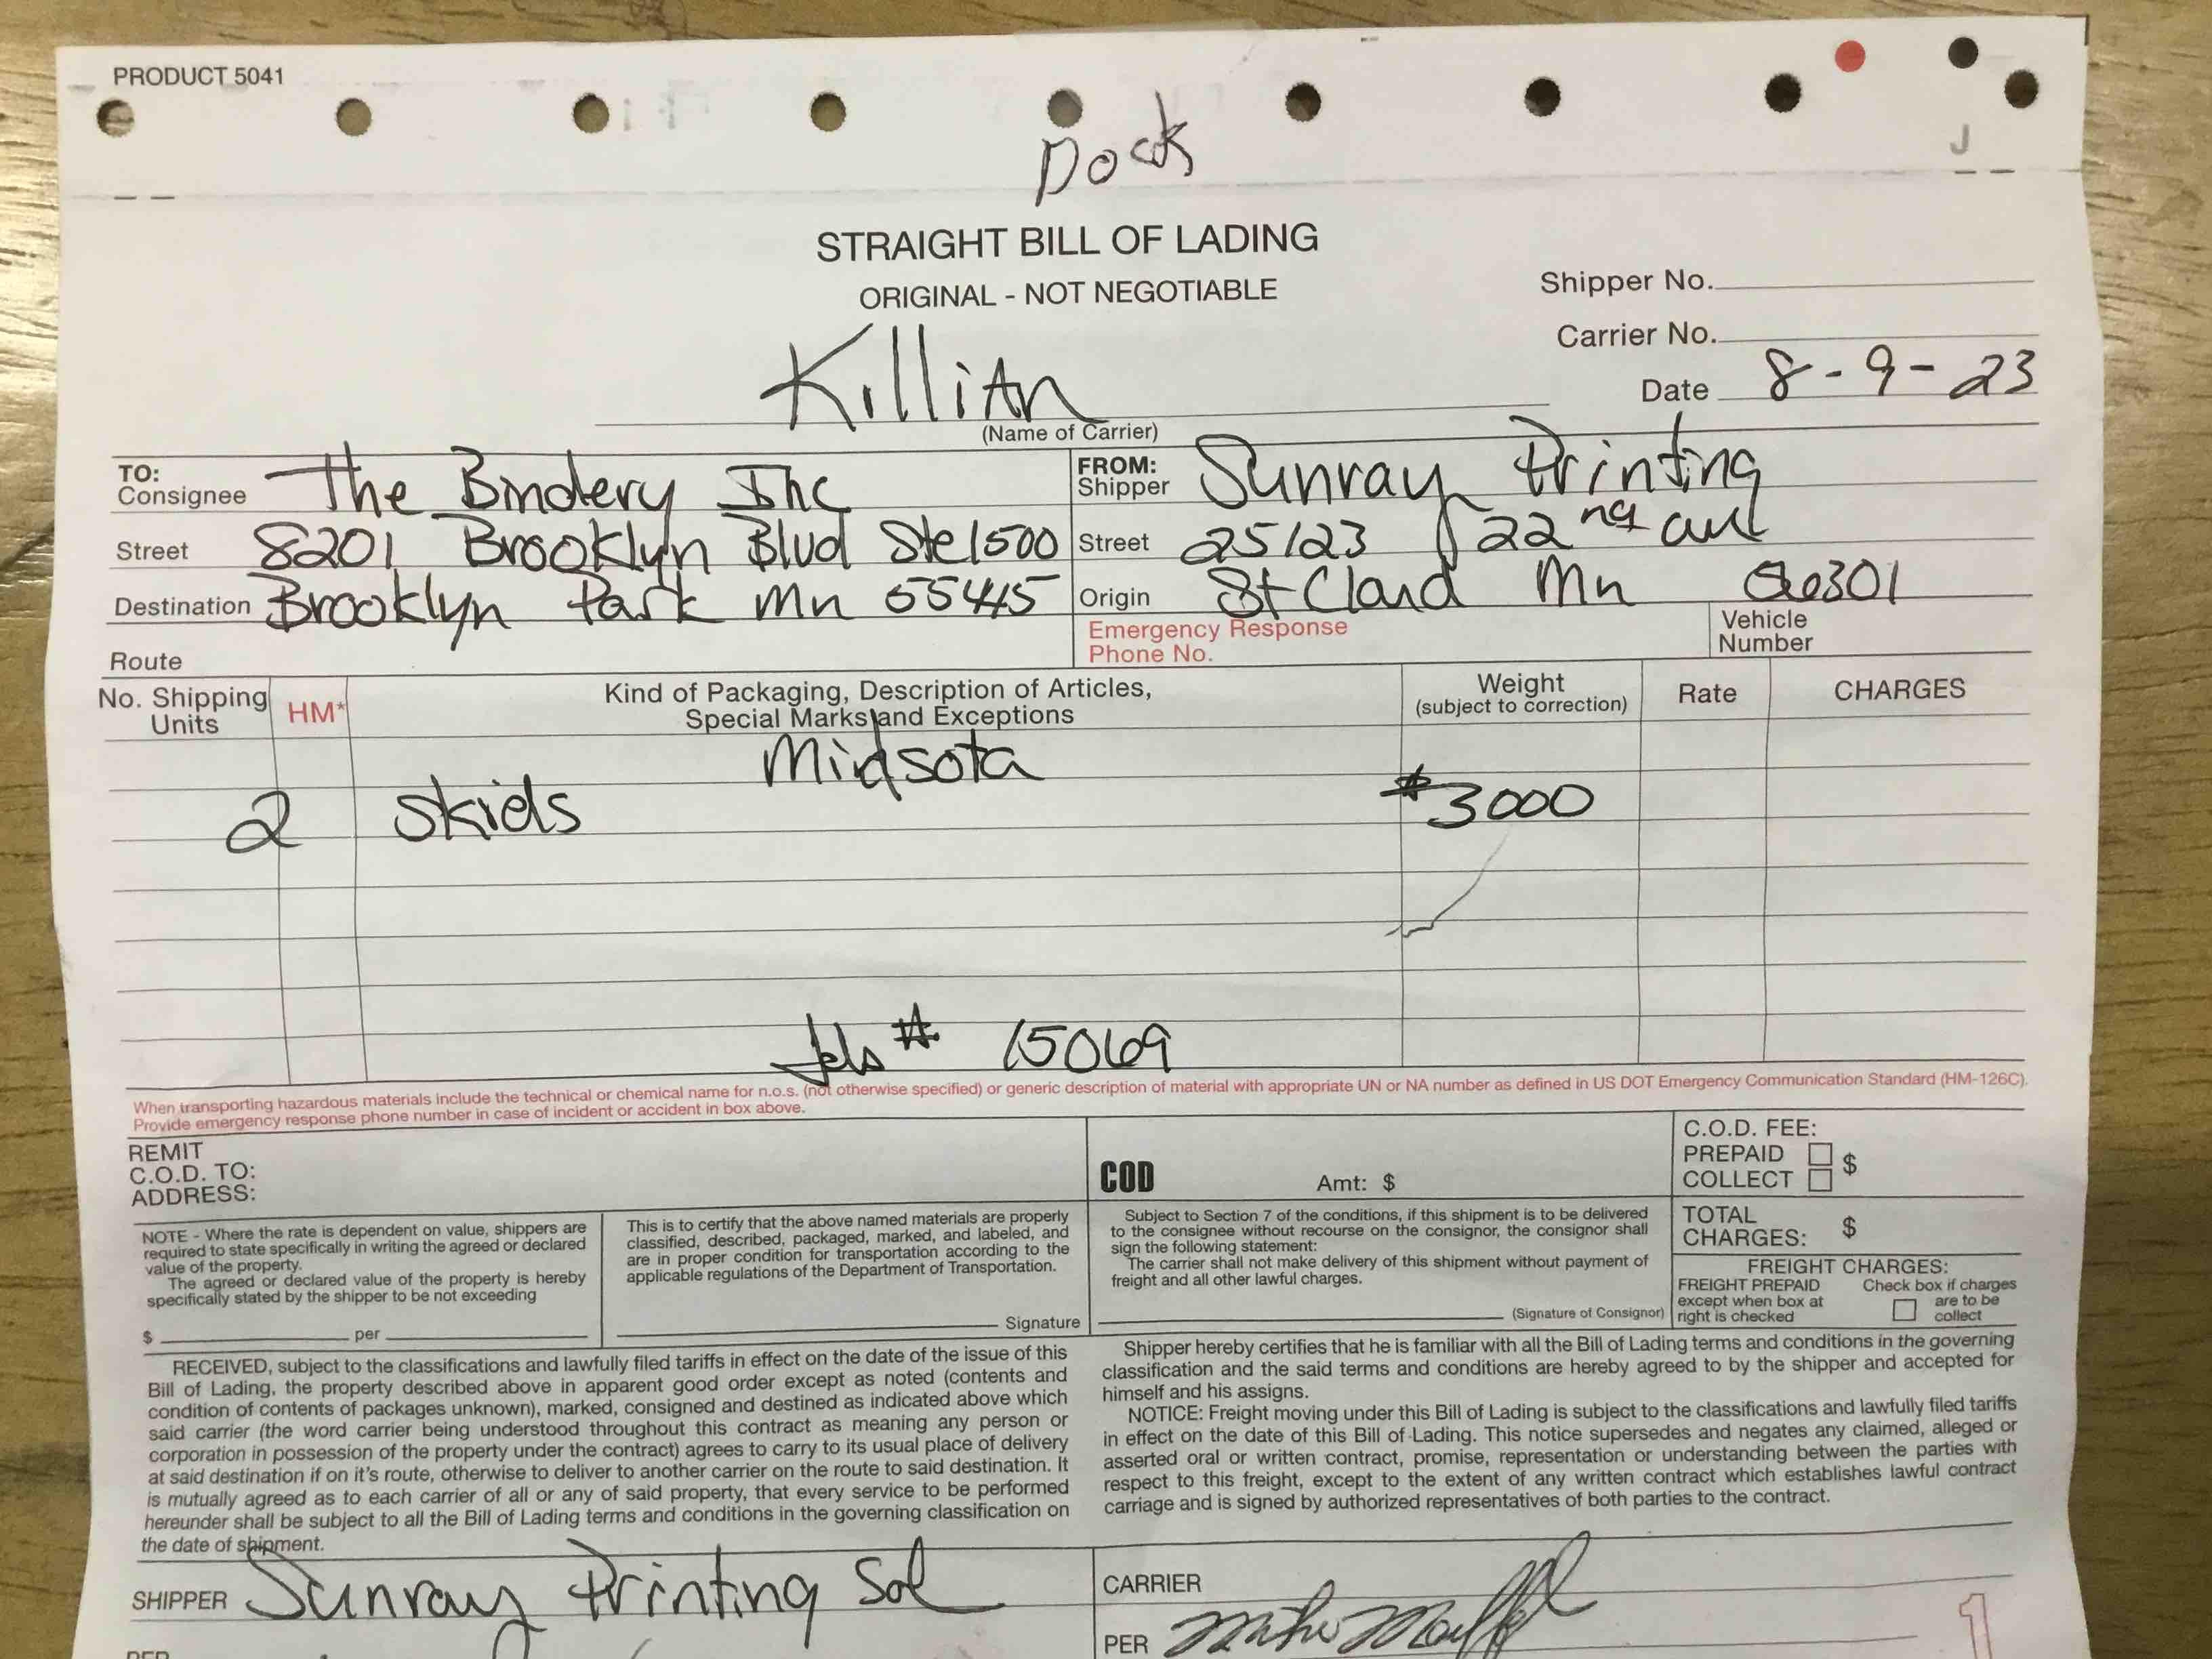 PRODUCT 5041
J
Dock
STRAIGHT BILL OF LADING
ORIGINAL - NOT NEGOTIABLE
Shipper No.
Carrier No.
Date 8-9-23
Killian
(Name of Carrier)
TO:
Consignee The Bindery Inc
Street 8201 Brooklyn Blvd Ste 1500
Destination Brooklyn Park Mn 55445
Route
FROM:
Shipper Sunray Printing
Street 25123 22nd ave
Origin St Cloud Mn 56301
Emergency Response
Phone No.
Vehicle
Number
No. Shipping
Units
HM*
Kind of Packaging, Description of Articles,
Special Marks and Exceptions
Weight
(subject to correction)
Rate
CHARGES
Minsota
2 skids #3000
# 15069
When transporting hazardous materials include the technical or chemical name for n.o.s. (not otherwise specified) or generic description of material with appropriate UN or NA number as defined in US DOT Emergency Communication Standard (HM-126C).
Provide emergency response phone number in case of incident or accident in box above.
REMIT
C.O.D. TO:
ADDRESS:
COD Amt: $
C.O.D. FEE:
PREPAID
COLLECT $
NOTE - Where the rate is dependent on value, shippers are
required to state specifically in writing the agreed or declared
value of the property.
The agreed or declared value of the property is hereby
specifically stated by the shipper to be not exceeding
$ per
This is to certify that the above named materials are properly
classified, described, packaged, marked, and labeled, and
are in proper condition for transportation according to the
applicable regulations of the Department of Transportation.
Signature
Subject to Section 7 of the conditions, if this shipment is to be delivered
to the consignee without recourse on the consignor, the consignor shall
sign the following statement:
The carrier shall not make delivery of this shipment without payment of
freight and all other lawful charges.
(Signature of Consignor)
TOTAL
CHARGES: $
FREIGHT CHARGES:
FREIGHT PREPAID
except when box at
right is checked
Check box if charges
are to be
collect
RECEIVED, subject to the classifications and lawfully filed tariffs in effect on the date of the issue of this
Bill of Lading, the property described above in apparent good order except as noted (contents and
condition of contents of packages unknown), marked, consigned and destined as indicated above which
said carrier (the word carrier being understood throughout this contract as meaning any person or
corporation in possession of the property under the contract) agrees to carry to its usual place of delivery
at said destination if on it's route, otherwise to deliver to another carrier on the route to said destination. It
is mutually agreed as to each carrier of all or any of said property, that every service to be performed
hereunder shall be subject to all the Bill of Lading terms and conditions in the governing classification on
the date of shipment.
Shipper hereby certifies that he is familiar with all the Bill of Lading terms and conditions in the governing
classification and the said terms and conditions are hereby agreed to by the shipper and accepted for
himself and his assigns.
NOTICE: Freight moving under this Bill of Lading is subject to the classifications and lawfully filed tariffs
in effect on the date of this Bill of Lading. This notice supersedes and negates any claimed, alleged or
asserted oral or written contract, promise, representation or understanding between the parties with
respect to this freight, except to the extent of any written contract which establishes lawful contract
carriage and is signed by authorized representatives of both parties to the contract.
SHIPPER Sunray Printing Sol
CARRIER
PER
1